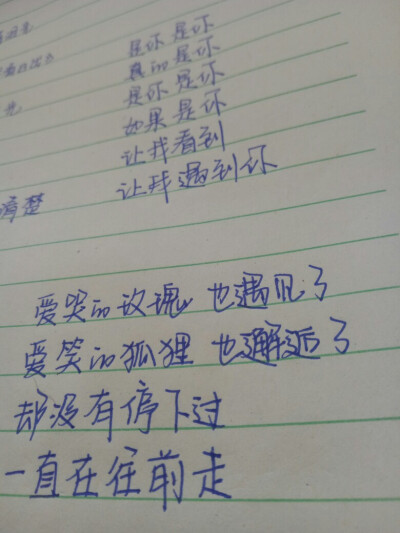 是你 是你
真的是你
是你 是你
如果是你
让我看到
清楚 让我遇到你
爱哭的玫瑰 也遇见了
爱笑的狐狸 也邂逅了
却没有停下过
一直在往前走